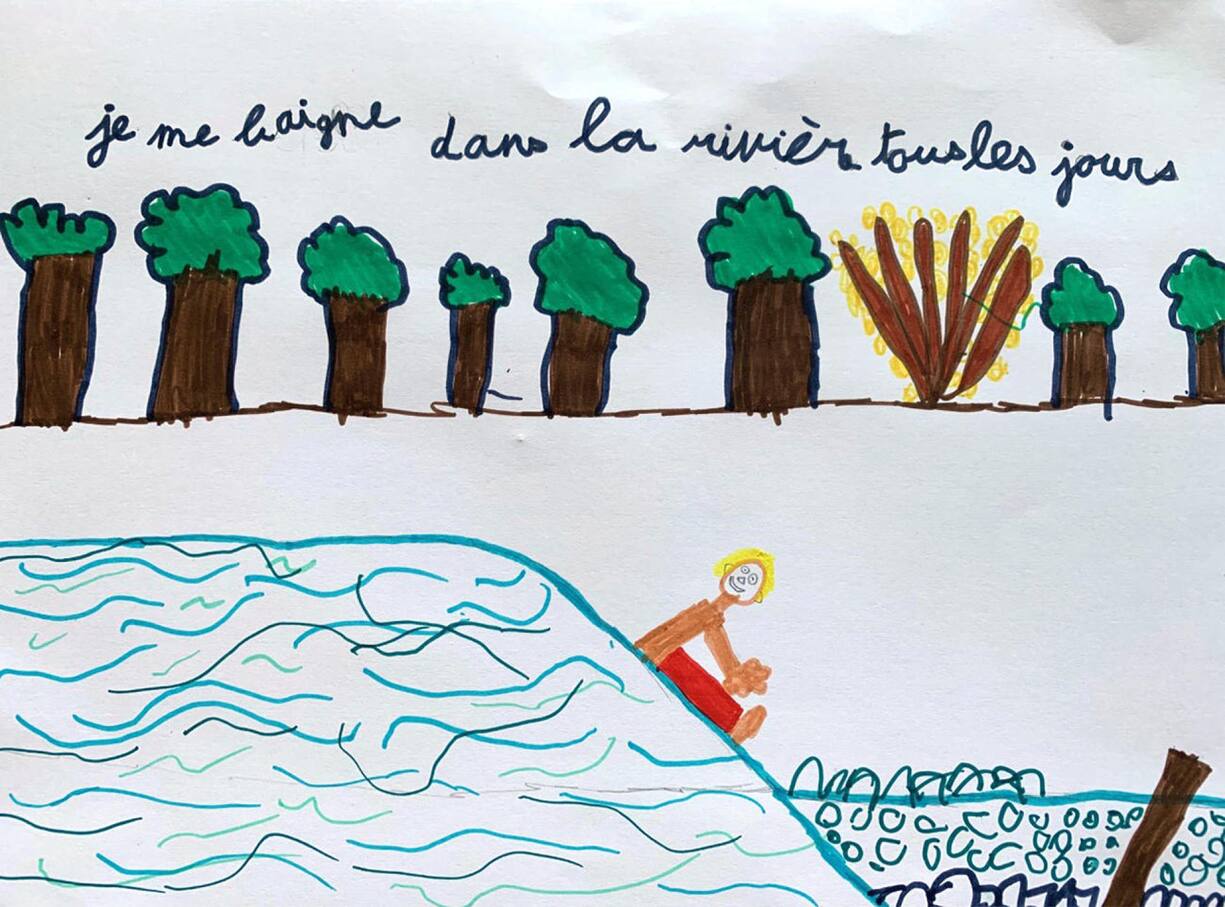 je me baigne dans la rivièr tous les jours